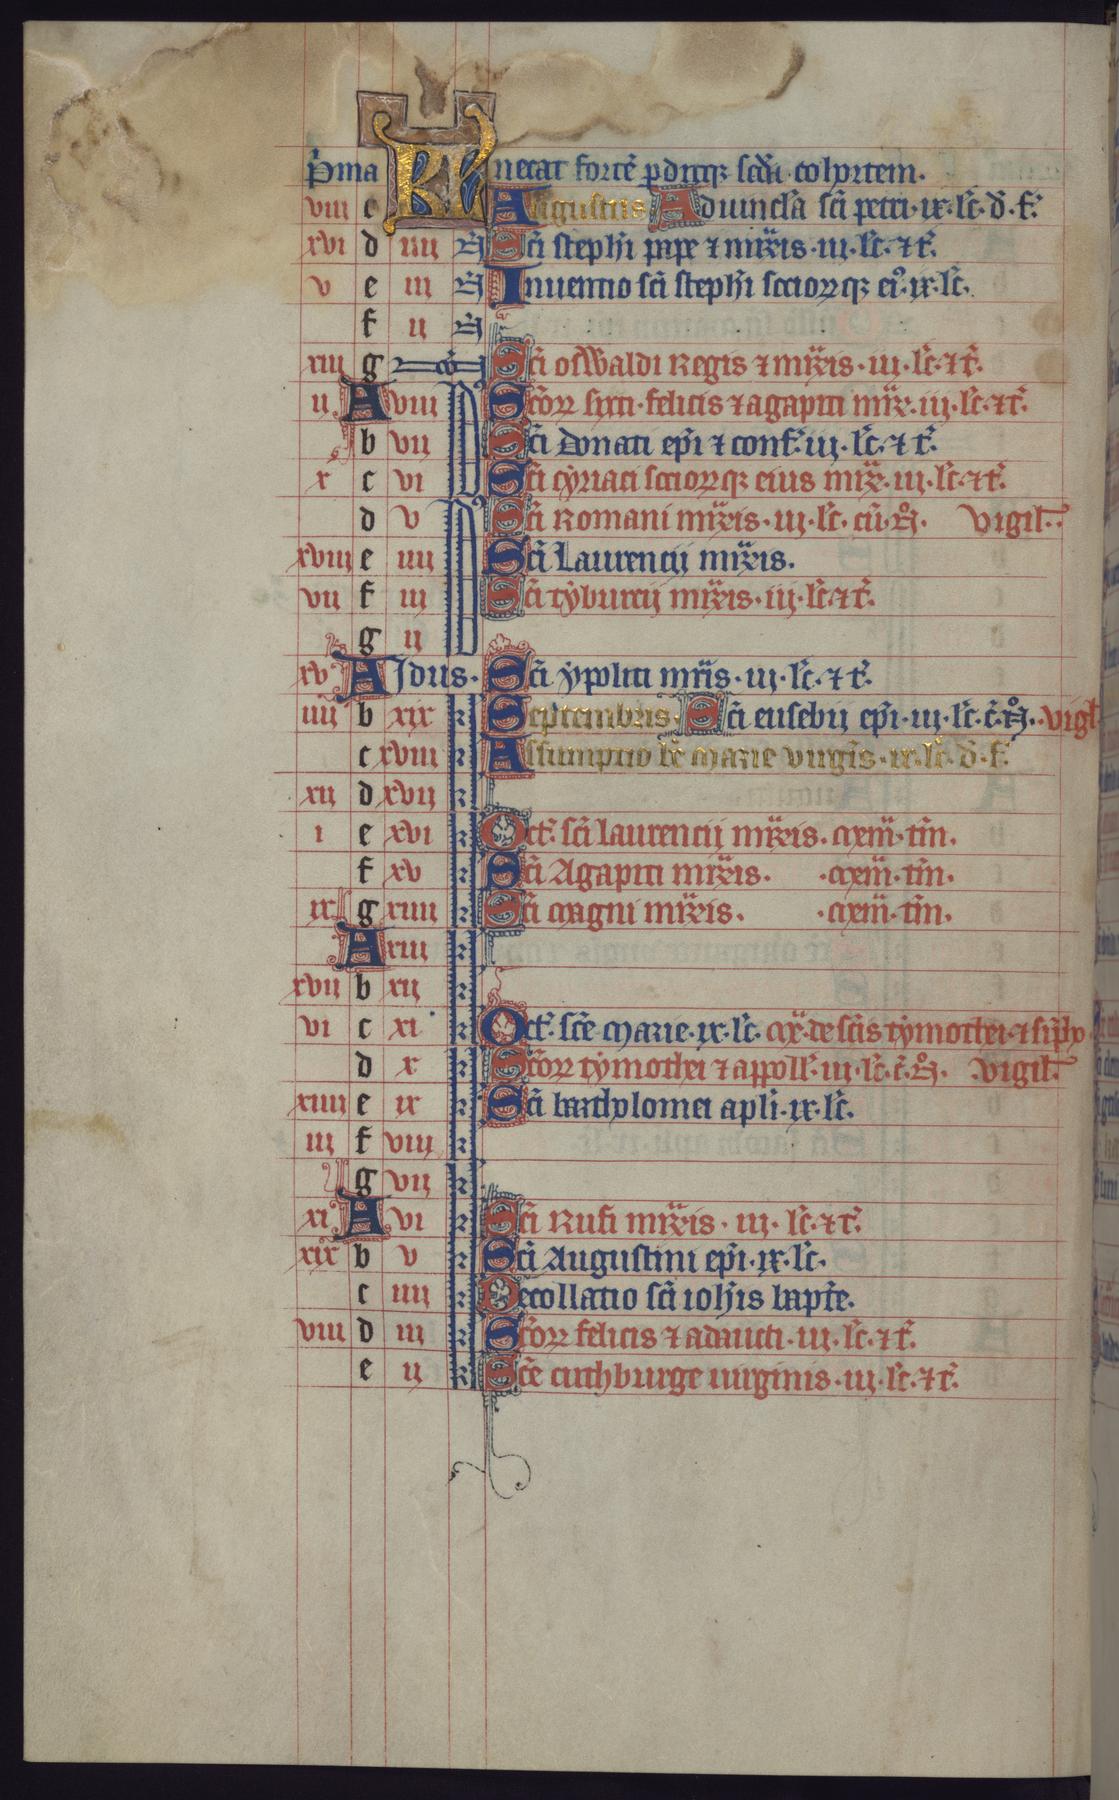 P̄ma KL necat fortē p̄ditq; scd̄a colortem.
viii c Augustus Aduincl̄a sc̄i petri·ix·lc̄·d·f·
xvi d iiii N̄ Sc̄i steph̄i pape ⁊ mr̄is·iii·lc̄·⁊ t̄·
v e iii N̄ Inuentio sc̄i steph̄i sociorq; ei᷒·ix·lc̄·
f ii N̄
xiii g Sc̄i oswaldi Regis ⁊ mr̄is·iii·lc̄·⁊ t̄·
ii A viii Sc̄oꝝ sixti·felicis ⁊ agapiti mr̄·iii·lc̄·⁊ t̄·
b vii Sc̄i Donati ep̄i ⁊ conf·iii·lc̄·⁊ t̄·
x c vi Sc̄i cyriaci sociorq; eius mr̄·iii·lc̄·⁊ t̄·
d v Sc̄i Romani mr̄is·iii·lc̄·cū·N̊· vigil·
xviii e iiii Sc̄i Laurencij mr̄is.
vii f iii Sc̄i tyburcij mr̄is·iii·lc̄·⁊ t̄·
g ii
xv A Idus· Sc̄i ypoliti mr̄is·iii·lc̄·⁊ t̄·
iiii b xix k Septembris· Sc̄i eusebii ep̄i·iii·lc̄·c̄·N̊·vigl
c xviii k Assumptio bē marie virgīs·ix·lc̄·d·f·
xii d xvii k
i e xvi k Oct̄· sc̄i laurencij mr̄is·
f xv k Sc̄i Agapiti mr̄is.
ix g xiiii k Sc̄i magni mr̄is.
A xiii k
xvii b xii k
vi c xi k Oct̄· sc̄e marie·ix·lc̄· de sc̄is tymothei·⁊
d x k Sc̄oꝝ tymothei ⁊ appoll·iii·lc̄·c̄·N̊· vigil·
xiiii e ix k Sc̄i bartholomei apl̄i·ix·lc̄·
iii f viii k
g vii k
xi A vi k Sc̄i Rufi mr̄is·iii·lc̄·⁊ t̄·
xix b v k Sc̄i Augustini ep̄i·ix·lc̄·
c iiii k Decollatio sc̄i ioh̄is bapt̄e.
viii d iii k Sc̄oꝝ felicis ⁊ adaucti·iii·lc̄·⁊ t̄·
e ii k Sc̄e cuthburge uirginis·iii·lc̄·⁊ t̄·